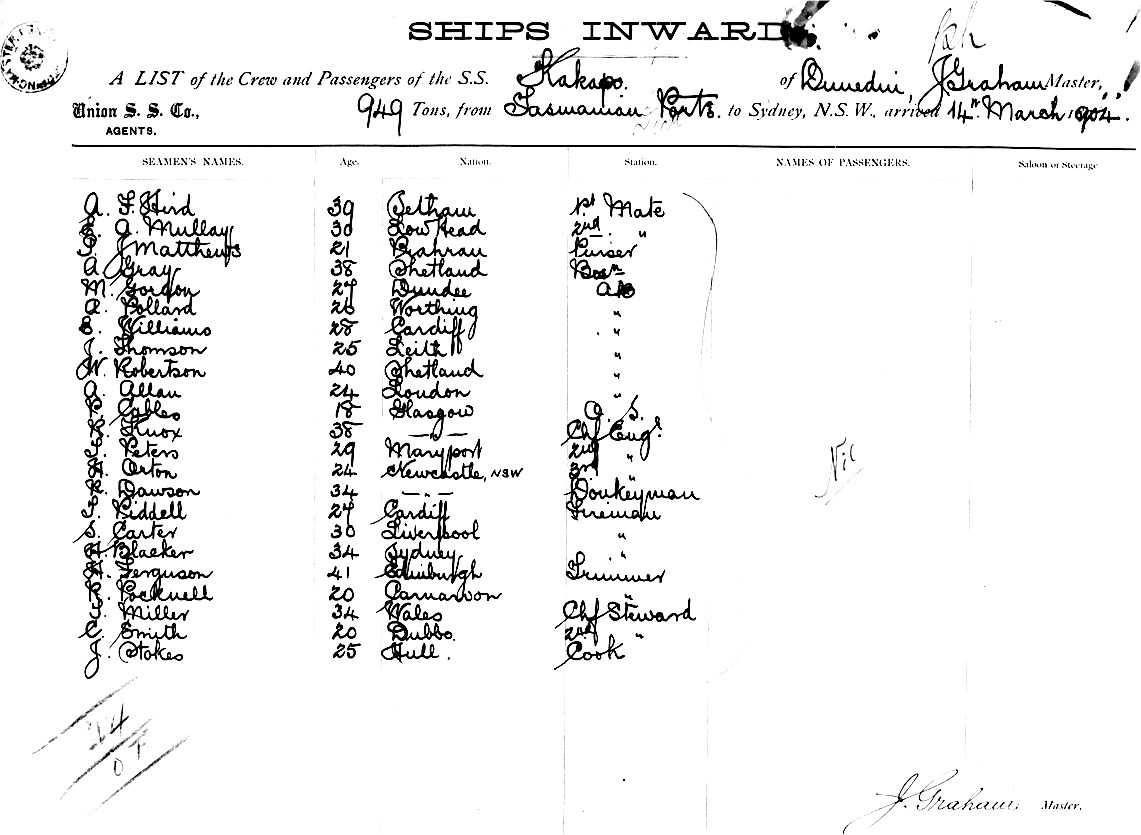 SHIPS INWARD
A LIST of the Crew and Passengers of the S.S. Kakapo. of Dunedin, J Graham Master,
Union S. S. Co., 949 Tons, from Tasmanian Ports. to Sydney, N.S.W., arrived 14th March 1904.
AGENTS.
SEAMEN'S NAMES. Age. Nation. Station. NAMES OF PASSENGERS. Saloon or Steerage
A. F. Hird 39 1st Mate
A. Mullay 30 Low Head 2nd "
J Matthews 21 Prahran Purser
A Gray 38 Shetland Bosn
M. Gordon 27 Dundee AB
A. Pollard 26 Worthing "
E. Williams 28 Cardiff "
J. Thomson 25 Leith "
W. Robertson 40 Shetland "
A. Allan 24 London "
P. Cables 18 Glasgow O. S.
R. Knox 38 —"— Chf Engr
Peters 29 Maryport 2nd "
H. Orton 24 Newcastle, NSW 3rd "
R. Dawson 34 —"— Donkeyman
Riddell 27 Cardiff Fireman
S. Carter 30 Liverpool "
H. Blacker 34 Sydney "
Ferguson 41 Edinburgh Trimmer
R. Pocknell 20 Carnarvon "
Miller 34 Wales Chf Steward
C. Smith 20 Dubbo. 2nd "
J. Stokes 25 Hull. Cook
Nil
24
J. Graham Master.